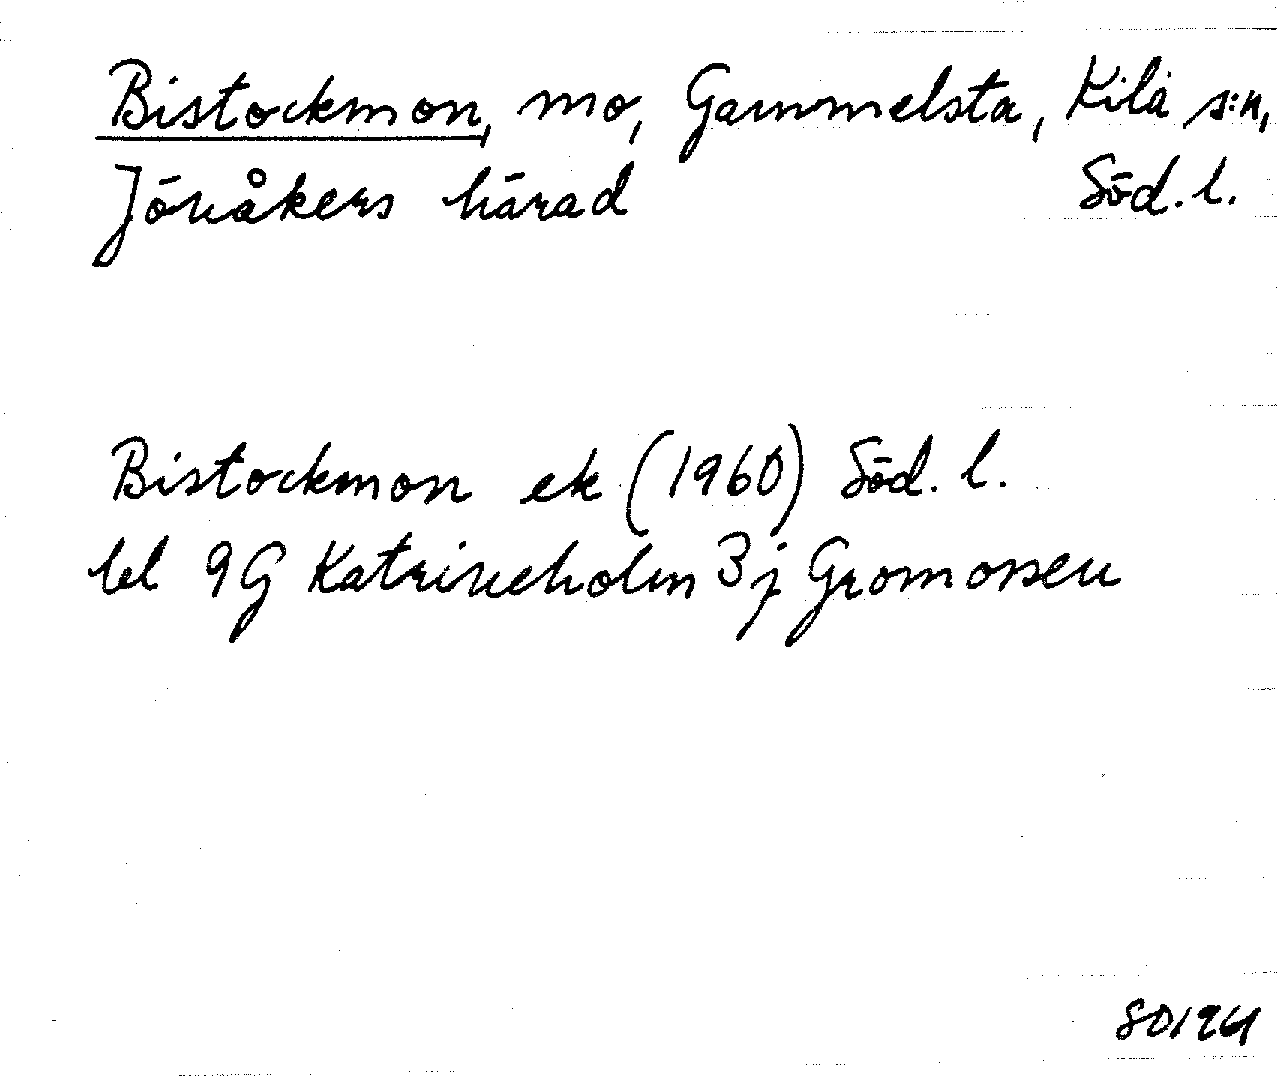 Bistockmon, mo, Gammelsta, Kila s:n,
Jönåkers härad Söd. l.
Bistockmon ek (1960) Söd. l.
bl 9G Katrineholm 3j Gromossen